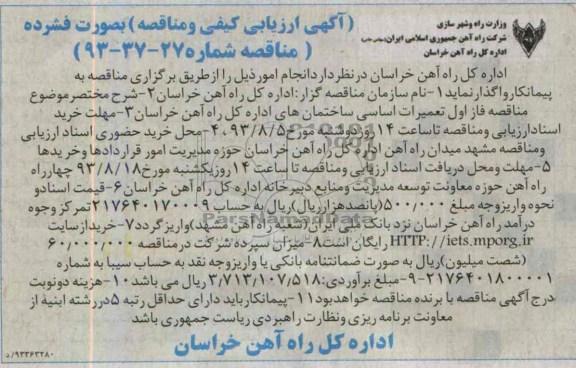 وزارت راه وشهر سازی
شرکت راه آهن جمهوری اسلامی ایران(سهامی خاص)
اداره کل راه آهن خراسان
(آگهی ارزیابی کیفی ومناقصه)بصورت فشرده
( مناقصه شماره۲۷-۳۷-۹۳)
اداره کل راه آهن خراسان درنظرداردانجام امورذیل را ازطریق برگزاری مناقصه به
پیمانکارواگذارنماید۱-نام سازمان مناقصه گزار:اداره کل راه آهن خراسان۲-شرح مختصرموضوع
مناقصه فاز اول تعمیرات اساسی ساختمان های اداره کل راه آهن خراسان۳-مهلت خرید
اسنادارزیابی ومناقصه تاساعت ۱۴ روزدوشنبه مورخ۹۳/۸/۵ ۴-محل خرید حضوری اسناد ارزیابی
ومناقصه مشهد میدان راه آهن اداره کل راه آهن خراسان حوزه مدیریت امور قراردادها وخریدها
۵-مهلت ومحل دریافت اسناد ارزیابی ومناقصه تا ساعت ۱۴ روزیکشنبه مورخ۹۳/۸/۱۸ چهارراه
راه آهن حوزه معاونت توسعه مدیریت ومنابع دبیرخانه اداره کل راه آهن خراسان۶-قیمت اسنادو
نحوه واریزوجه مبلغ ۵۰۰/۰۰۰(پانصدهزارریال)ریال به حساب ۲۱۷۶۴۰۱۷۰۰۰۹تمرکزوجوه
درآمد راه آهن خراسان نزد بانک ملی ایران(شعبه راه آهن مشهد)واریزگردد۷-خریدازسایت
HTTP://iets.mporg.ir رایگان است۸-میزان سپرده شرکت درمناقصه ۶۰/۰۰۰/۰۰۰
(شصت میلیون)ریال به صورت ضمانتنامه بانکی یا واریزوجه نقد به حساب سیبا به شماره
۲۱۷۶۴۰۱۸۰۰۰۰۱-۹-مبلغ برآوردی:۳/۷۱۳/۱۰۷/۵۱۸ریال می باشد۱۰-هزینه دونوبت
درج آگهی مناقصه با برنده مناقصه خواهدبود۱۱-پیمانکارباید دارای حداقل رتبه ۵دررشته ابنیه از
معاونت برنامه ریزی ونظارت راهبردی ریاست جمهوری باشد
اداره کل راه آهن خراسان
۹۳۳۶۳۲۸۰/د
ParsNamadData